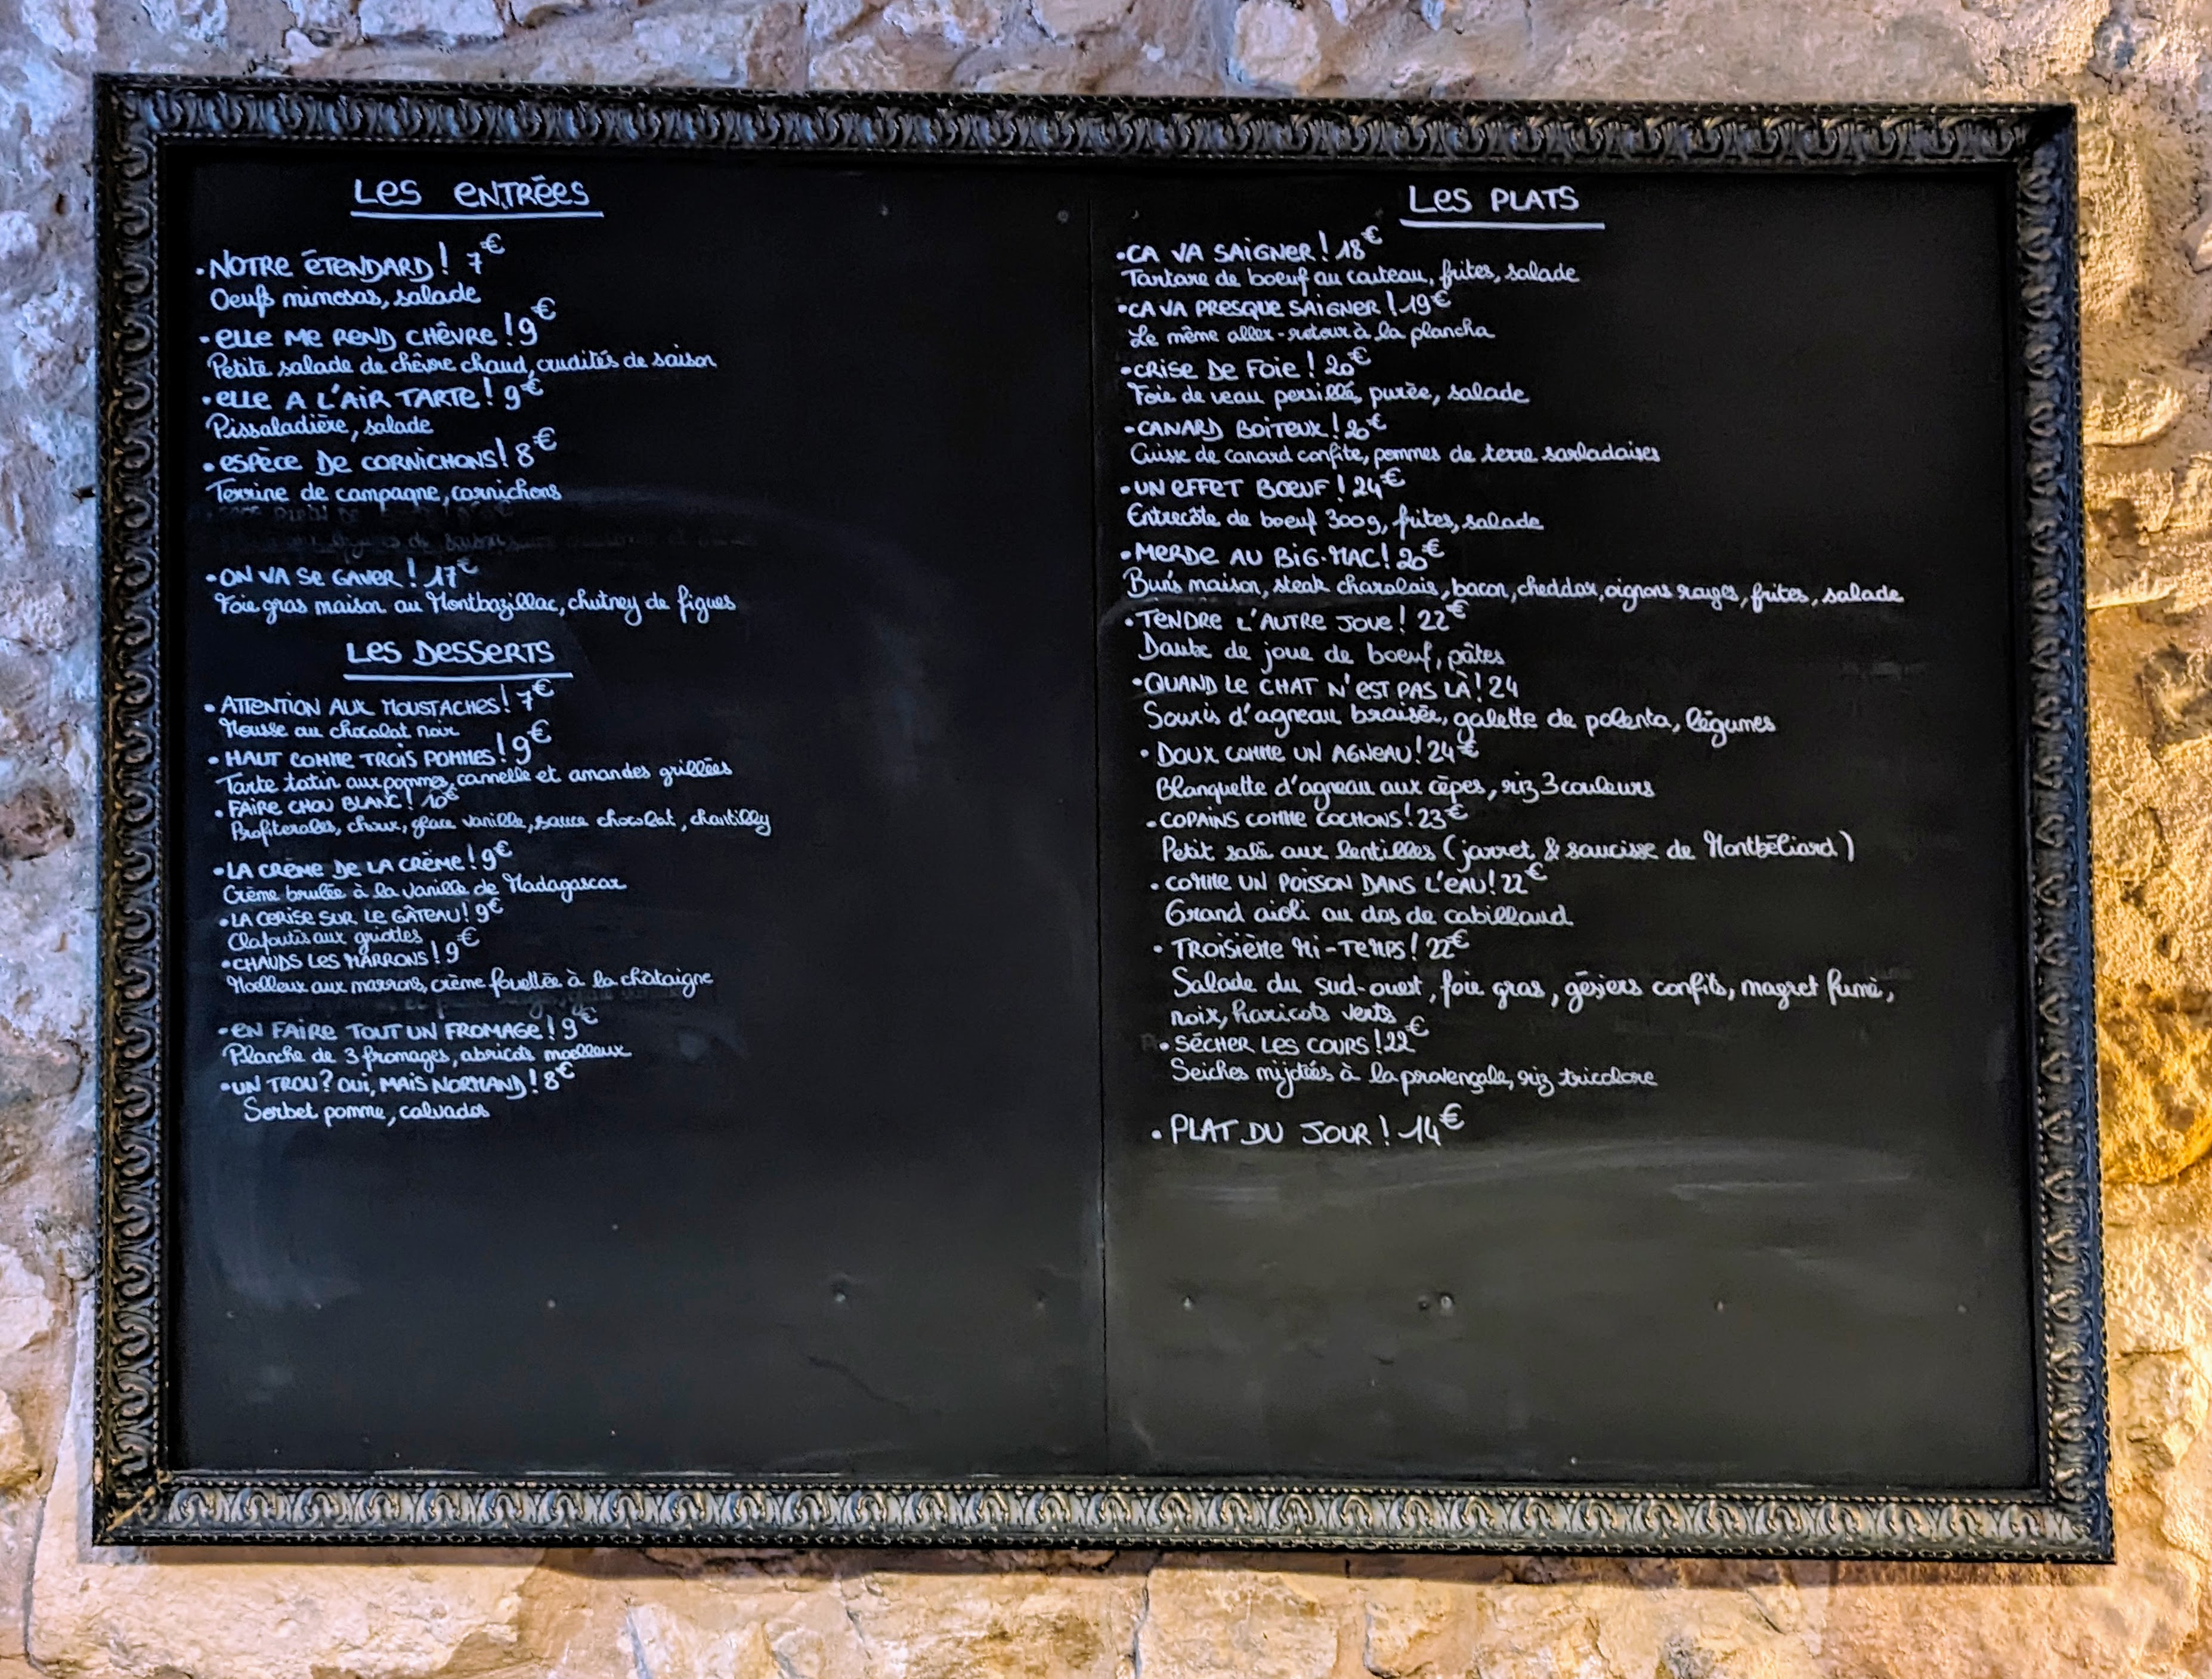 LES ENTRÉES
• NOTRE ÉTENDARD ! 7€
Oeufs mimosas, salade
• ELLE ME REND CHÊVRE ! 9€
Petite salade de chêvre chaud, crudités de saison
• ELLE A L'AIR TARTE ! 9€
Pissaladière, salade
• ESPÈCE DE CORNICHONS ! 8€
Terrine de campagne, cornichons
• ON VA SE GAVER ! 17€
Foie gras maison au Montbazillac, chutney de figues
LES DESSERTS
• ATTENTION AUX MOUSTACHES ! 7€
Mousse au chocolat noir
• HAUT COMME TROIS POMMES ! 9€
Tarte tatin aux pommes, cannelle et amandes grillées
• FAIRE CHOU BLANC ! 10€
Profiteroles, choux, glace vanille, sauce chocolat, chantilly
• LA CRÈME DE LA CRÈME ! 9€
Crème brulée à la vanille de Madagascar
• LA CERISE SUR LE GÂTEAU ! 9€
Clafoutis aux griottes
• CHAUDS LES MARRONS ! 9€
Moelleux aux marrons, crème fouettée à la châtaigne
• EN FAIRE TOUT UN FROMAGE ! 9€
Planche de 3 fromages, abricots moelleux
• UN TROU ? OUI, MAIS NORMAND ! 8€
Sorbet pomme, calvados
LES PLATS
• CA VA SAIGNER ! 18€
Tartare de boeuf au couteau, frites, salade
• CA VA PRESQUE SAIGNER ! 19€
Le même aller-retour à la plancha
• CRISE DE FOIE ! 20€
Foie de veau persillé, purée, salade
• CANARD BOITEUX ! 20€
Cuisse de canard confite, pommes de terre sarladaises
• UN EFFET BOEUF ! 24€
Entrecôte de boeuf 300g, frites, salade
• MERDE AU BIG-MAC ! 20€
Bun's maison, steak charolais, bacon, cheddar, oignons rouges, frites, salade
• TENDRE L'AUTRE JOUE ! 22€
Daube de joue de boeuf, pâtes
• QUAND LE CHAT N'EST PAS LÀ ! 24
Souris d'agneau braisée, galette de polenta, légumes
• DOUX COMME UN AGNEAU ! 24€
Blanquette d'agneau aux cèpes, riz 3 couleurs
• COPAINS COMME COCHONS ! 23€
Petit salé aux lentilles (jarret & saucisse de Montbéliard)
• COMME UN POISSON DANS L'EAU ! 22€
Grand aioli au dos de cabillaud
• TROISIÈME MI-TEMPS ! 22€
Salade du sud-ouest, foie gras, gésiers confits, magret fumé,
noix, haricots verts
• SÉCHER LES COURS ! 22€
Seiches mijotées à la provençale, riz tricolore
• PLAT DU JOUR ! 14€